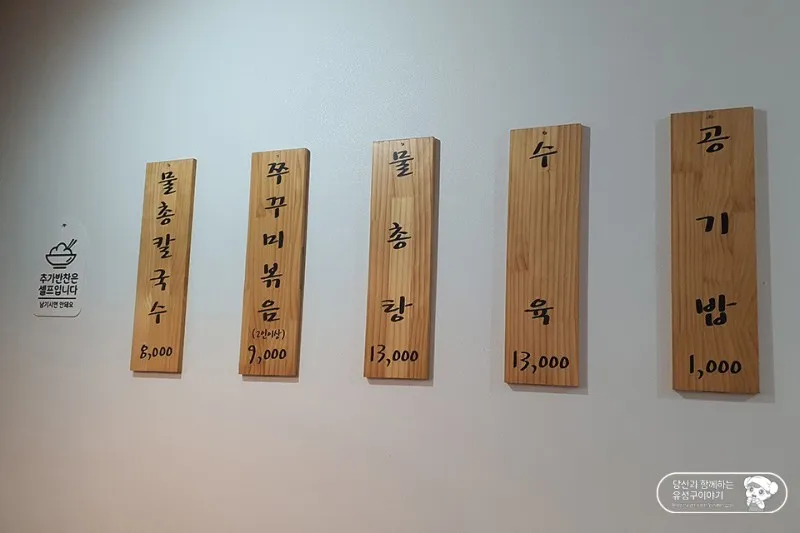 추가반찬은
셀프입니다
남기시면 안돼요
물총칼국수
8,000
쭈꾸미볶음
(2인이상)
9,000
물총탕
13,000
수육
13,000
공기밥
1,000
당신과 함께하는
유성구이야기